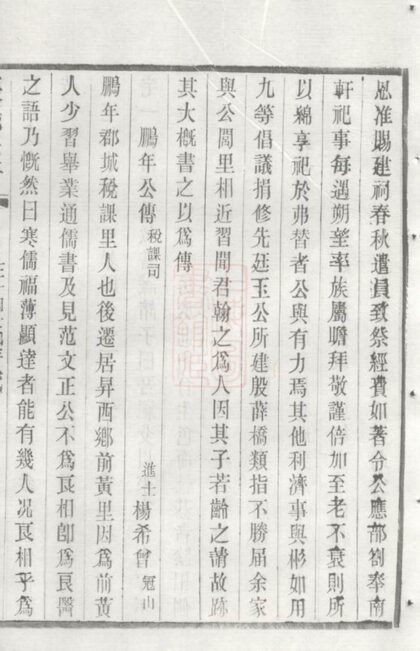 恩准賜建祠春秋遣員致祭經費如著令公應部劄奉南
軒祀事每遇朔望率族屬瞻拜敬謹倍加至老不衰則所
以綿享祀於弗替者公與有力焉其他利濟事與彬如用
九等倡議捐修先廷玉公所建殷薛橋類指不勝屈余家
與公閭里相近習聞君翰之為人因其子若齡之請故跡
其大概書之以為傳
鵬年公傳 稅課司
進士楊希曾冠山
鵬年郡城稅課里人也後遷居昇西鄉前黃里因為前黃
人少習舉業通儒書及見范文正公不為良相卽為良醫
之語乃慨然曰寒儒福薄顯達者能有幾人况良相乎為